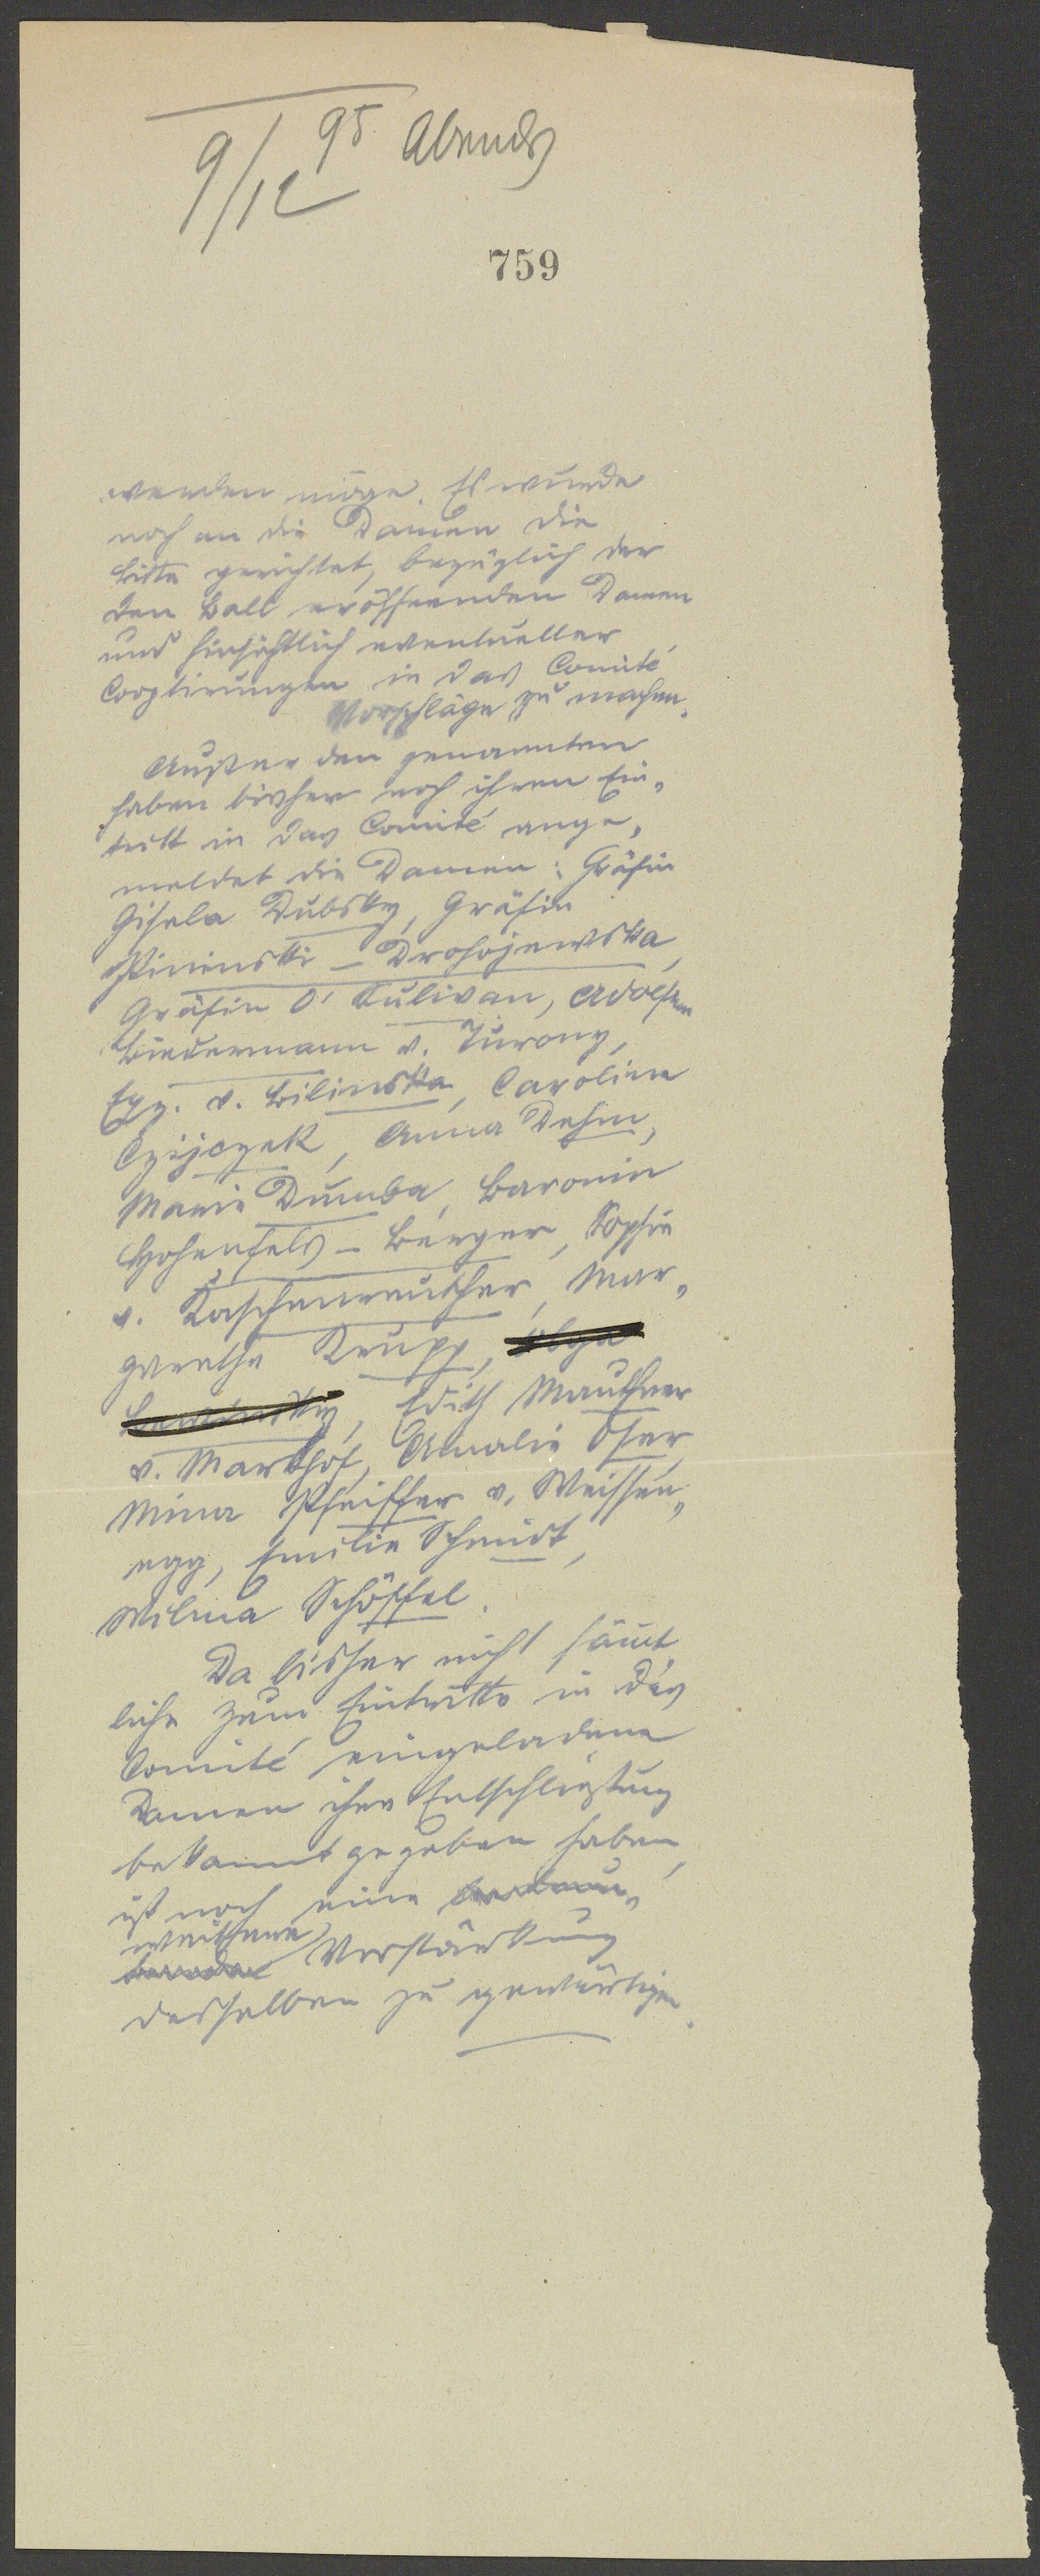 9/12 95 Abends
759
werden möge. Es wurde
noch an die Damen die
Bitte gerichtet, bezüglich der
den Ball eröffnenden Damen
und hinsichtlich eventueller
Cooptirungen in das Comité
Vorschläge zu machen.
Außer den genannten
haben bisher noch ihren Ein„
tritt in das Comité ange„
meldet die Damen: Gräfin
Gisela Dubsky, Gräfin
Pininski - Drohojewska,
Gräfin O' Sulivan,
Biedermann v. Turony,
Exz. v. Bilinska, Carolina
Czijczek, Anna Dehm,
Marie Dumba, Baronin
Hohenfels - Berger, Sophie
v. Kaschenreuther, Mar„
garethe Krupp, Olga
Lewinsky, Edith Mauthner
v. Markhof, Amalie Oser,
Mina Pfeiffer v. Weissen„
egg, Emilie Schmidt,
Wilma Schöffel.
Da bisher nicht sämt
liche zum Eintritte in das
Comité eingeladene
Damen ihre Entschließung
bekannt gegeben haben,
ist noch eine
weitere
Verstärkung
desselben zu gewärtigen.